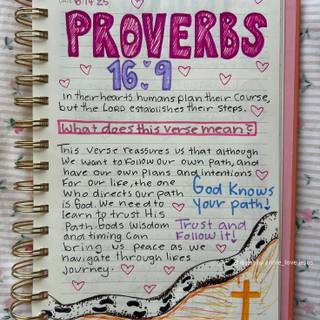 6.14.25
PROVERBS
16:9
In their hearts humans plan their course,
but the LORD establishes their steps.
What does this verse mean?
This verse reassures us that although
we want to follow our own path, and
have our own plans and intentions
for our life, the one
who directs our path
is God. We need to
learn to trust His
Path. Gods wisdom
and timing can
bring us peace as we
navigate through lifes
journey.
God Knows
your path↓
Trust and
Follow it↓